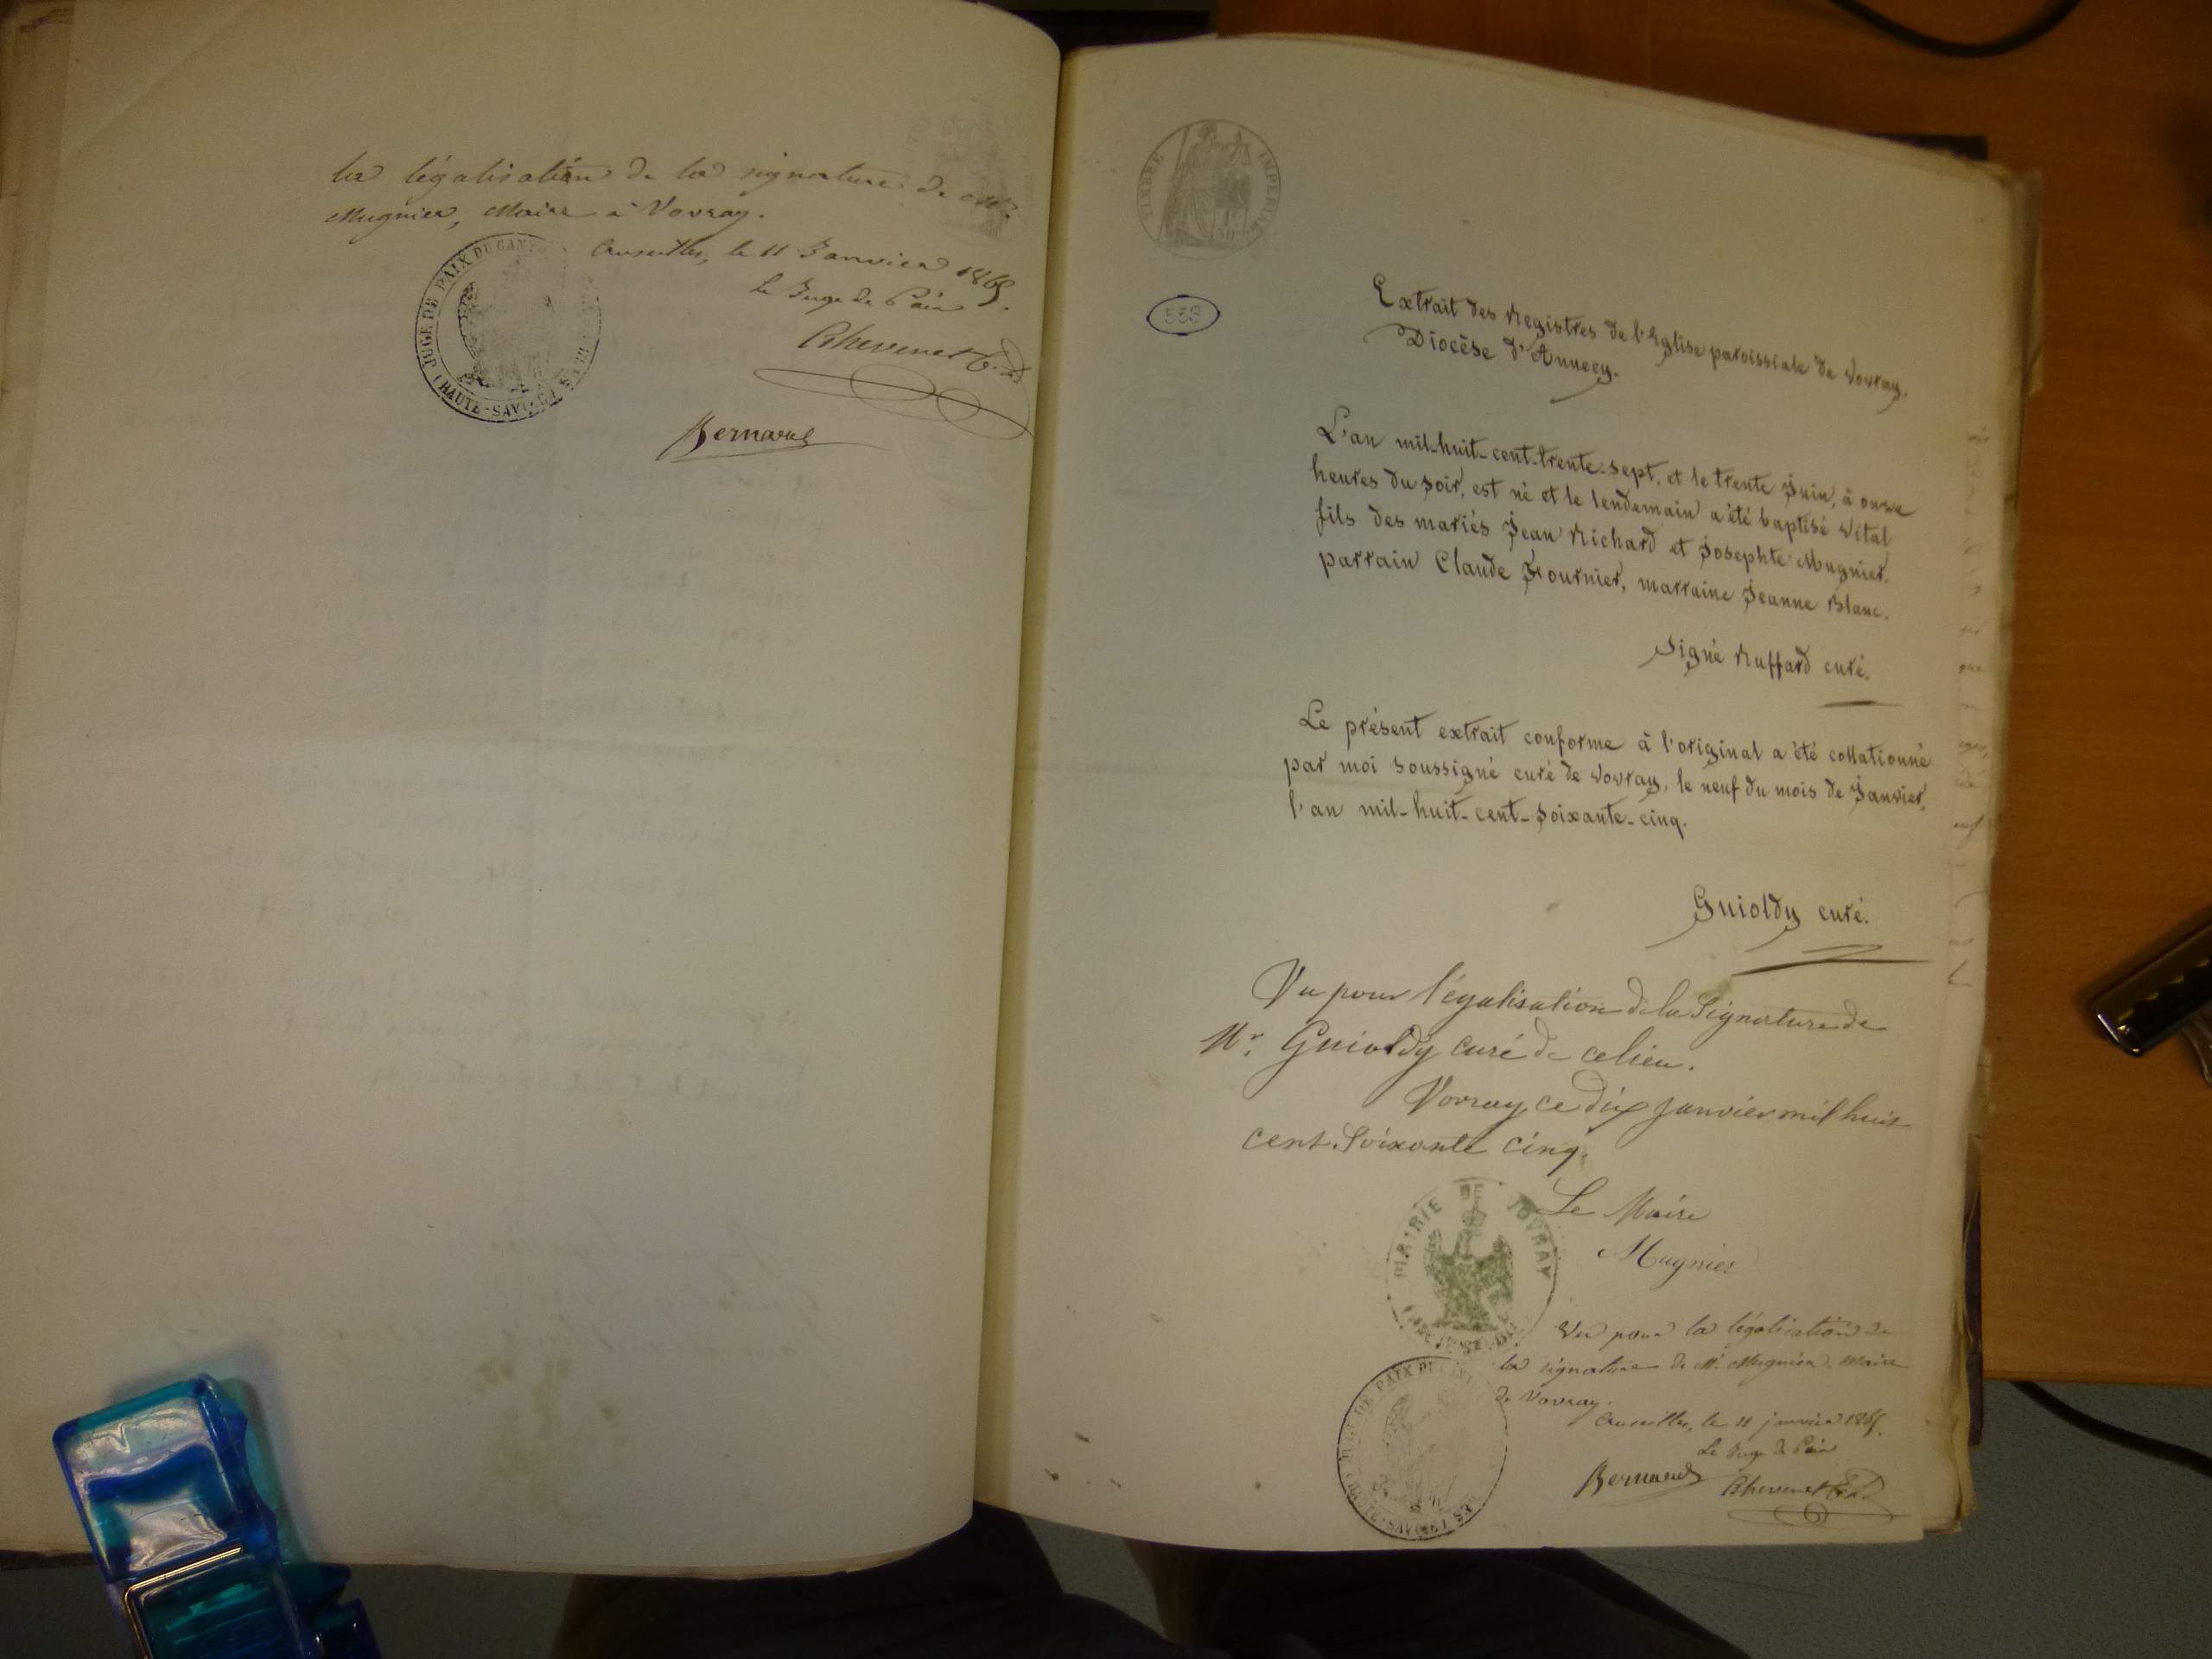 la légalisation de la signature de Mr.
Mugnier, Maire à Vovray.
Cruseilles, le 11 Janvier 1865.
Le Juge de Paix
JUGE DE PAIX DU CANTON
(HAUTE-SAVOIE)
Bernard
TIMBRE IMPERIAL
1F
50C
Extrait des Registres de l'Eglise paroissiale de Vovray,
Diocèse d'Annecy.
L'an mil-huit-cent-trente-sept, et le trente Juin, à onze
heures du soir, est né et le lendemain a été baptisé Vital
fils des mariés Jean Richard et Josephte Mugnier.
parrain Claude Fournier, marraine Jeanne Blanc.
Signé Ruffard curé.
Le présent extrait conforme à l'original a été collationné
par moi soussigné curé de Vovray, le neuf du mois de Janvier,
l'an mil-huit-cent-soixante-cinq.
Guioldy curé.
Vu pour légalisation de la Signature de
Mr. Guioldy curé de ce lieu.
Vovray ce dix janvier mil huit
cent Soixante cinq.
MAIRIE DE VOVRAY
Le Maire
Mugnier
Vu pour la légalisation de
la signature de M. Mugnier, Maire
de Vovray.
Cruseilles, le 11 janvier 1865.
Le Juge de Paix
JUGE DE PAIX DU
HAUTE-SAVOIE
Bernard